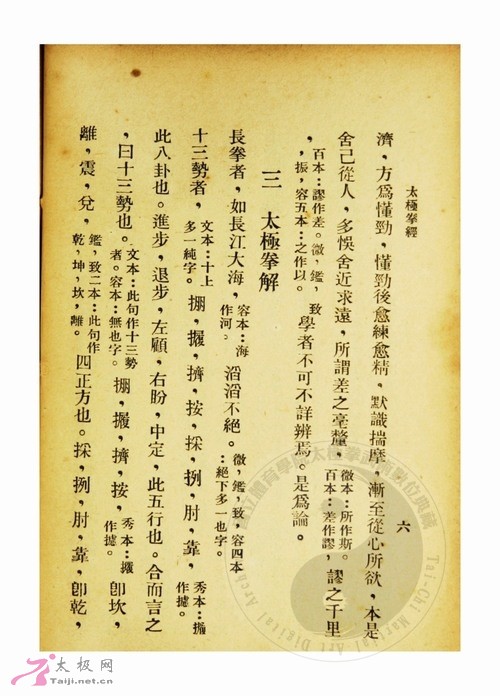 太極拳經
六
濟，方爲懂勁，懂勁後愈練愈精，默識揣摩，漸至從心所欲，本是
舍己從人，多悞舍近求遠，所謂差之毫釐，微本：所作斯。百本：差作謬，謬之千里
，百本：謬作差。微，鑑，致，振，容五本：之作以。學者不可不詳辨焉。是爲論。
三 太極拳解
長拳者，如長江大海，容本：海作河。滔滔不絕。微，鑑，致，容四本：絕下多一也字。
十三勢者，文本：十上多一純字。掤，攦，擠，按，採，挒，肘，靠，秀本：攦作擄。
此八卦也。進步，退步，左顧，右盼，中定，此五行也。合而言之
，曰十三勢也。文本：此句作十三勢者。容本：無也字。掤，攦，擠，按，秀本：攦作擄。卽坎，
離，震，兌，鑑，致二本：此句作乾，坤，坎，離。四正方也。採，挒，肘，靠，卽乾，
Tai-Chi Martial Art Digital Arch
太极网
Taiji.net.cn